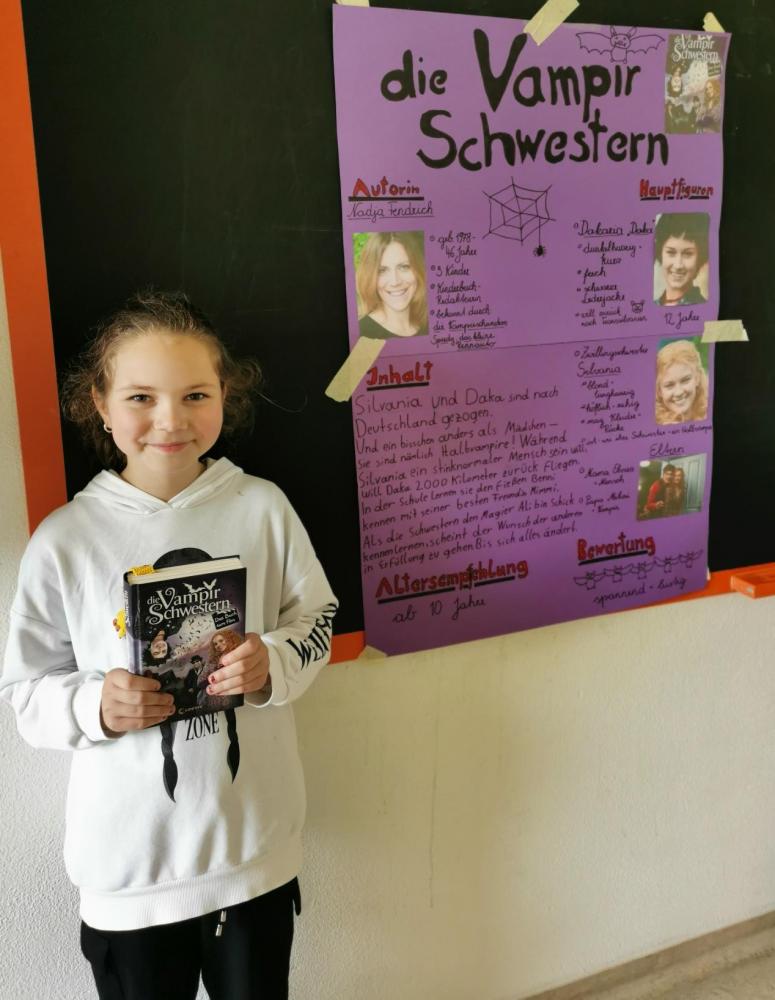 die Vampir
Schwestern
die Vampir
Schwestern
Autorin
Nadja Fendrich
° geb. 1978-
46 Jahre
° 3 Kinder
° Kinderbuch-
Redakteurin
° bekannt durch
die Vampirschwestern
das kleine
Hauptfiguren
° Dakaria "Daka"
° dunkelhaarig-
kurz
° frech
° schwarze
Lederjacke
° will zurück
nach Transsilvanien
12 Jahre
° Zwillingsschwester
Silvania
° blond-
langhaarig
° höflich-ruhig
° mag Kleider-
Röcke
° ist wie ihre Schwester-ein Halbvampir
Eltern
° Mama Elvira
- Mensch
° Papa Mihai
- Vampir
Inhalt
Silvania und Daka sind nach
Deutschland gezogen.
Und ein bisschen anders als Mädchen-
Sie sind nämlich Halbvampire! Während
Silvania ein stinknormaler Mensch sein will,
will Daka 2000 Kilometer zurück fliegen.
In der Schule lernen sie den Fießen Benni
kennen mit seiner besten Freundin Mimmi.
Als die Schwestern den Magier Ali bin Schick
kennenlernen, scheint der Wunsch der anderen
in Erfüllung zu gehen. Bis sich alles ändert.
Altersempfehlung
ab 10 Jahre
Bewertung
spannend - lustig
die Vampir
Schwestern
Das Buch
zum Film
Loewe
ZONE